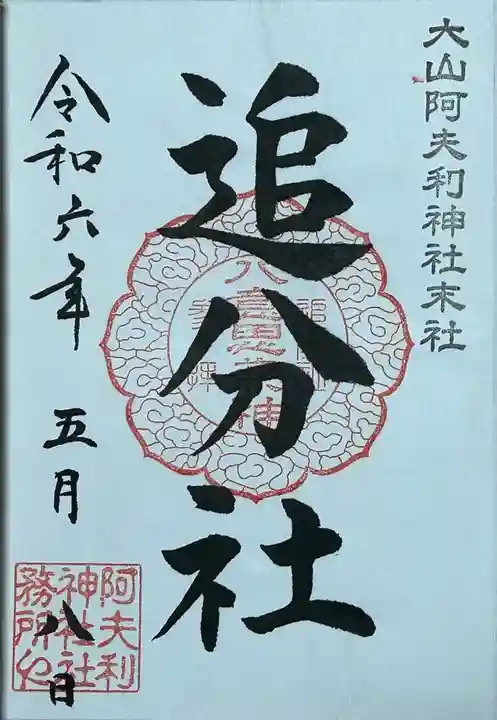 大山阿夫利神社末社
追分社
令和六年 五月 八日
阿夫利
神社社
務所印